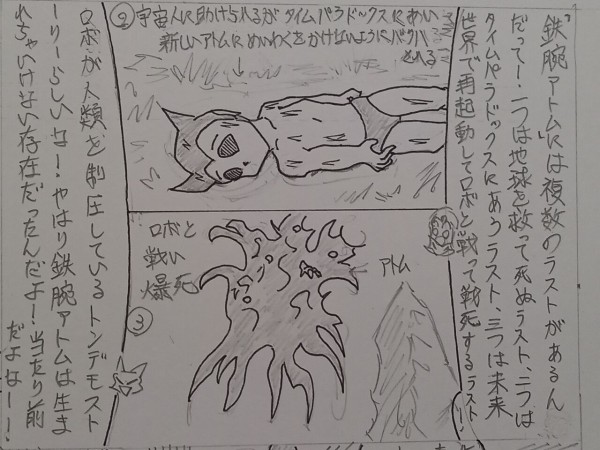 鉄腕アトムには複数のラストがあるん
だって!一つは地球を救って死ぬラスト、二つは
タイムパラドックスにあうラスト、三つは未来
世界で再起動してロボと戦って戦死するラスト!
②宇宙人に助けられるがタイムパラドックスにあい
新しいアトムにめいわくをかけないようにバクハ
される
アトム
ロボと
戦い
爆死
③
ロボが人類を制圧しているトンデモスト
ーリーらしいな!やはり鉄腕アトムは生ま
れちゃいけない存在だったんだよ!当たり前
だよなー!